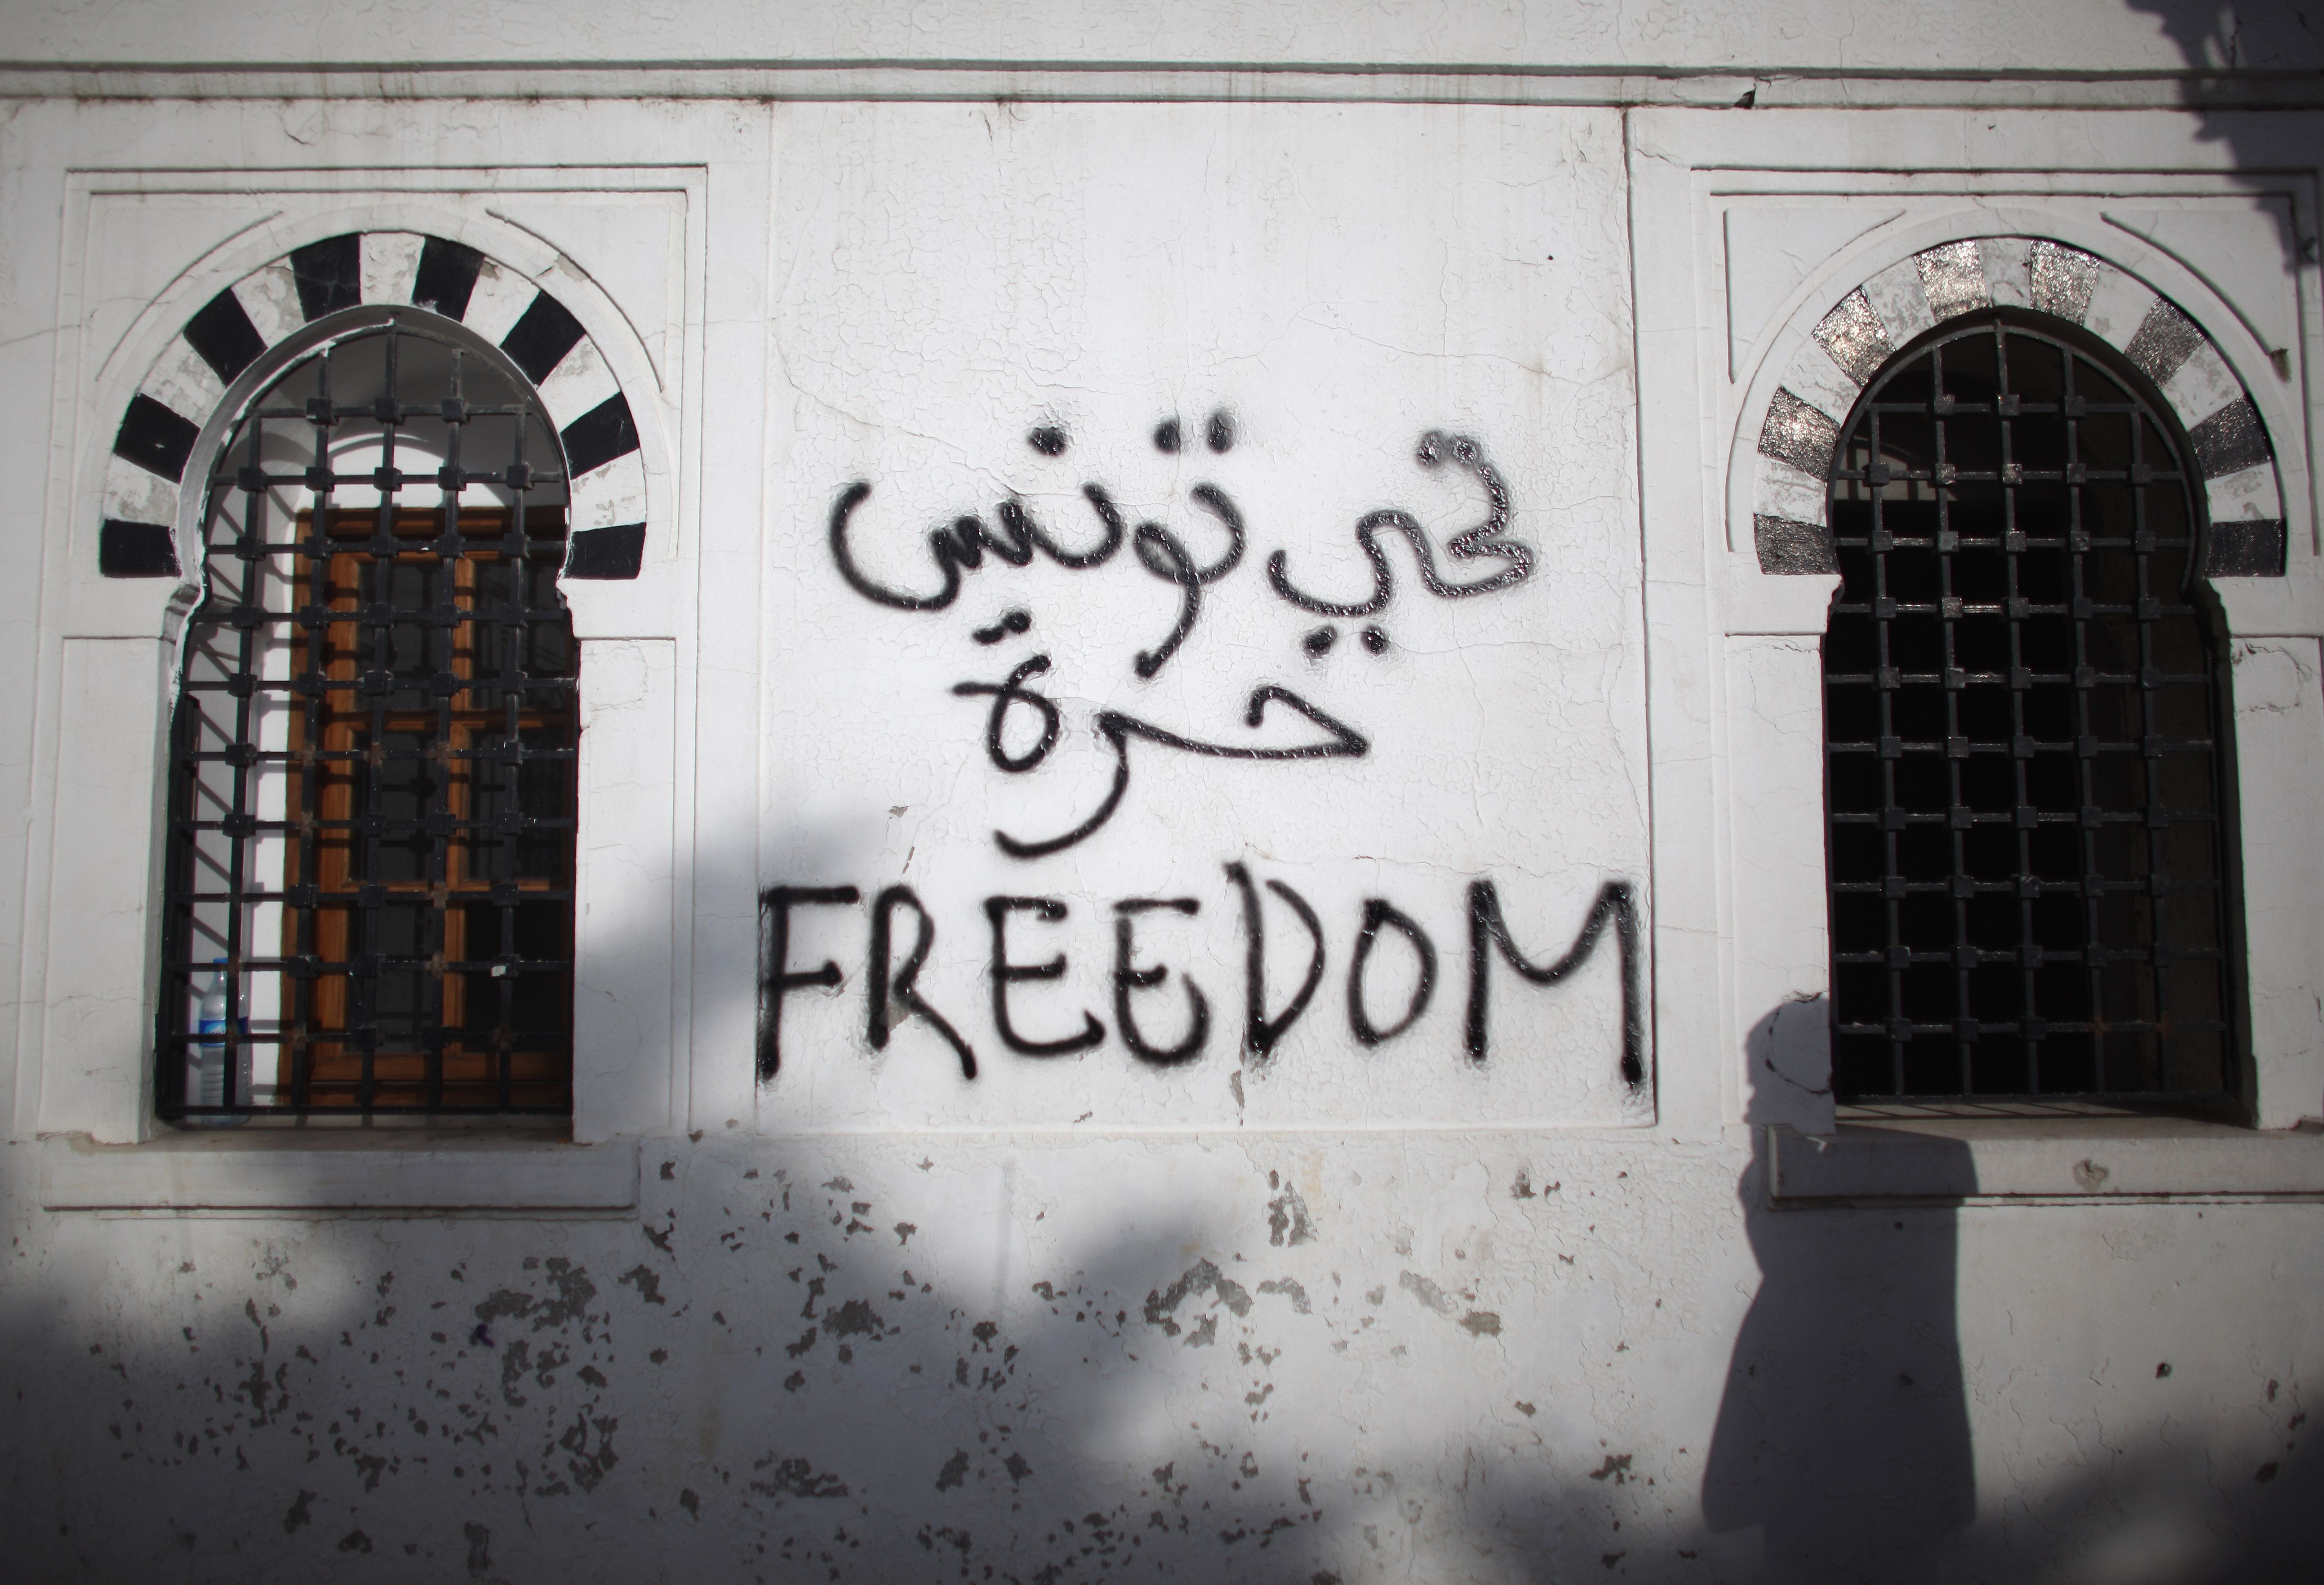 تحي تونس
حرة
FREEDOM